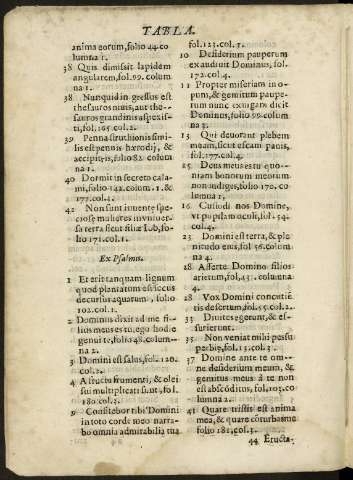 TABLA.
anima eorum, folio 44. co
lumna 1.
38 Quis dimisit lapidem
angularem, fol. 99. colum
na 1.
38 Nunquid ingressus est
thesauros niuis, aut the-
sauros grandinis aspexis-
ti, fol. 165. col. 2.
39 Penna struthionis simi-
lis est pennis hærodij, &
accipitris, folio 82. colum
na 1.
40 Dormit in secreto cala-
mi, folio 142. colum. 1. &
177. col. 1.
42 Non sunt inuentę spe-
ciosę mulieres in vniuer-
sa terra sicut filiæ Iob, fo-
lio 171. col. 1.
Ex Psalmis.
1 Et erit tanquam lignum
quod plantatum est secus
decursus aquarum, folio
102. col. 1.
2 Dominus dixit ad me fi-
lius meus es tu, ego hodie
genui te, folio 48. colum-
na 2.
3 Domini est salus, fol. 120.
col. 2.
4 A fructu frumenti, & olei
sui multiplicati sunt, fol.
180. col. 2.
9 Confitebor tibi Domini
in toto corde meo narra-
bo omnia admirabilia tua
fol. 123. col. 3.
10 Desiderium pauperum
exaudiuit Dominus, fol.
172. col. 4.
11 Propter miseriam ino-
pum, & gemitum paupe-
rum nunc exurgam dicit
Dominus, folio 99. colum
na 3.
13 Qui deuorant plebem
meam, sicut escam panis,
fol. 177. col. 4.
15 Deus meus es tu quo--
niam bonorum meorum
non indiges, folio 170. co
lumna 1.
16 Custodi nos Domine,
vt pupilam oculi, fol. 54.
col. 4.
23 Domini est terra, & ple
nitudo eius, fol. 56. colum
na 4.
28 Afferte Domino filios
arietum, fol. 43. columna
4.
28 Vox Domini concutiē
tis desertum, fol. 55. col. 2.
33 Diuites egerunt, & es-
surierunt.
35 Non veniat mihi pes su
perbię, fol. 15. col. 3.
37 Domine ante te om--
ne desiderium meum, &
gemitus meus à te non
est absconditus, fol. 105. co
lumna 2.
41 Quare tristis est anima
mea, & quare cōturbas me
folio 181. col. 1.
44 Eructa-